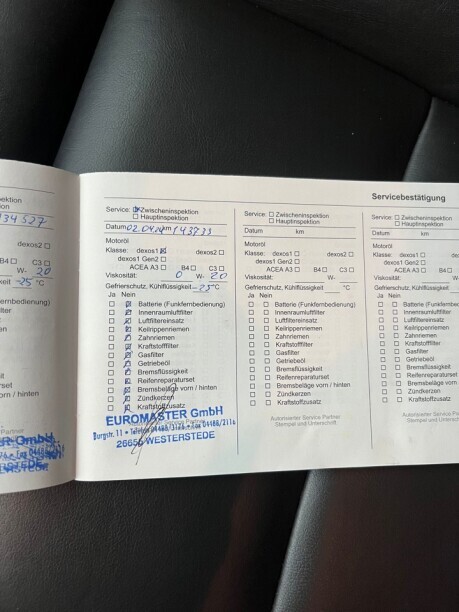 Servicebestätigung
pektion
on
134 527
dexos2 ☐
B4 ☐ C3 ☐
W- 20
keit -25 °C
rnbedienung)
lter
n
et
orn / hinten
Partner
Service: ☒ Zwischeninspektion
☐ Hauptinspektion
Datum 02.04.
Motoröl
Klasse: dexos1 ☒ dexos2 ☐
dexos1 Gen2 ☐
ACEA A3 ☐ B4 ☐ C3 ☐
Viskosität: 0 W- 20
Gefrierschutz, Kühlflüssigkeit -25 °C
Ja Nein
☐ ☒ Batterie (Funkfernbedienung)
☐ ☒ Innenraumluftfilter
☐ ☒ Luftfiltereinsatz
☐ ☒ Keilrippenriemen
☐ ☒ Zahnriemen
☐ ☒ Kraftstofffilter
☐ ☒ Gasfilter
☐ ☒ Getriebeöl
☐ ☒ Bremsflüssigkeit
☐ ☒ Reifenreparaturset
☐ ☒ Bremsbeläge vorn / hinten
☐ ☒ Zündkerzen
☐ ☒ Kraftstoffzusatz
EUROMASTER GmbH
Burgstr. 11 • Telefon 04488/ • Fax 04488/2114
26655 WESTERSTEDE
Service: ☐ Zwischeninspektion
☐ Hauptinspektion
Datum km
Motoröl
Klasse: dexos1 ☐ dexos2 ☐
dexos1 Gen2 ☐
ACEA A3 ☐ B4 ☐ C3 ☐
Viskosität: W-
Gefrierschutz, Kühlflüssigkeit °C
Ja Nein
☐ ☐ Batterie (Funkfernbedienung)
☐ ☐ Innenraumluftfilter
☐ ☐ Luftfiltereinsatz
☐ ☐ Keilrippenriemen
☐ ☐ Zahnriemen
☐ ☐ Kraftstofffilter
☐ ☐ Gasfilter
☐ ☐ Getriebeöl
☐ ☐ Bremsflüssigkeit
☐ ☐ Reifenreparaturset
☐ ☐ Bremsbeläge vorn / hinten
☐ ☐ Zündkerzen
☐ ☐ Kraftstoffzusatz
Autorisierter Service Partner
Stempel und Unterschrift
Service: ☐ Zwischeninspektion
☐ Hauptinspektion
Datum km
Motoröl
Klasse: dexos1 ☐
dexos1 Gen2 ☐
ACEA A3 ☐ B4
Viskosität:
Gefrierschutz, Kühlflüssigkeit
Ja Nein
☐ ☐ Batterie (Funkfernbed
☐ ☐ Innenraumluftfilter
☐ ☐ Luftfiltereinsatz
☐ ☐ Keilrippenriemen
☐ ☐ Zahnriemen
☐ ☐ Kraftstofffilter
☐ ☐ Gasfilter
☐ ☐ Getriebeöl
☐ ☐ Bremsflüssigkeit
☐ ☐ Reifenreparaturset
☐ ☐ Bremsbeläge vorn
☐ ☐ Zündkerzen
☐ ☐ Kraftstoffzusatz
Autorisierter Service Pa
Stempel und Untersch